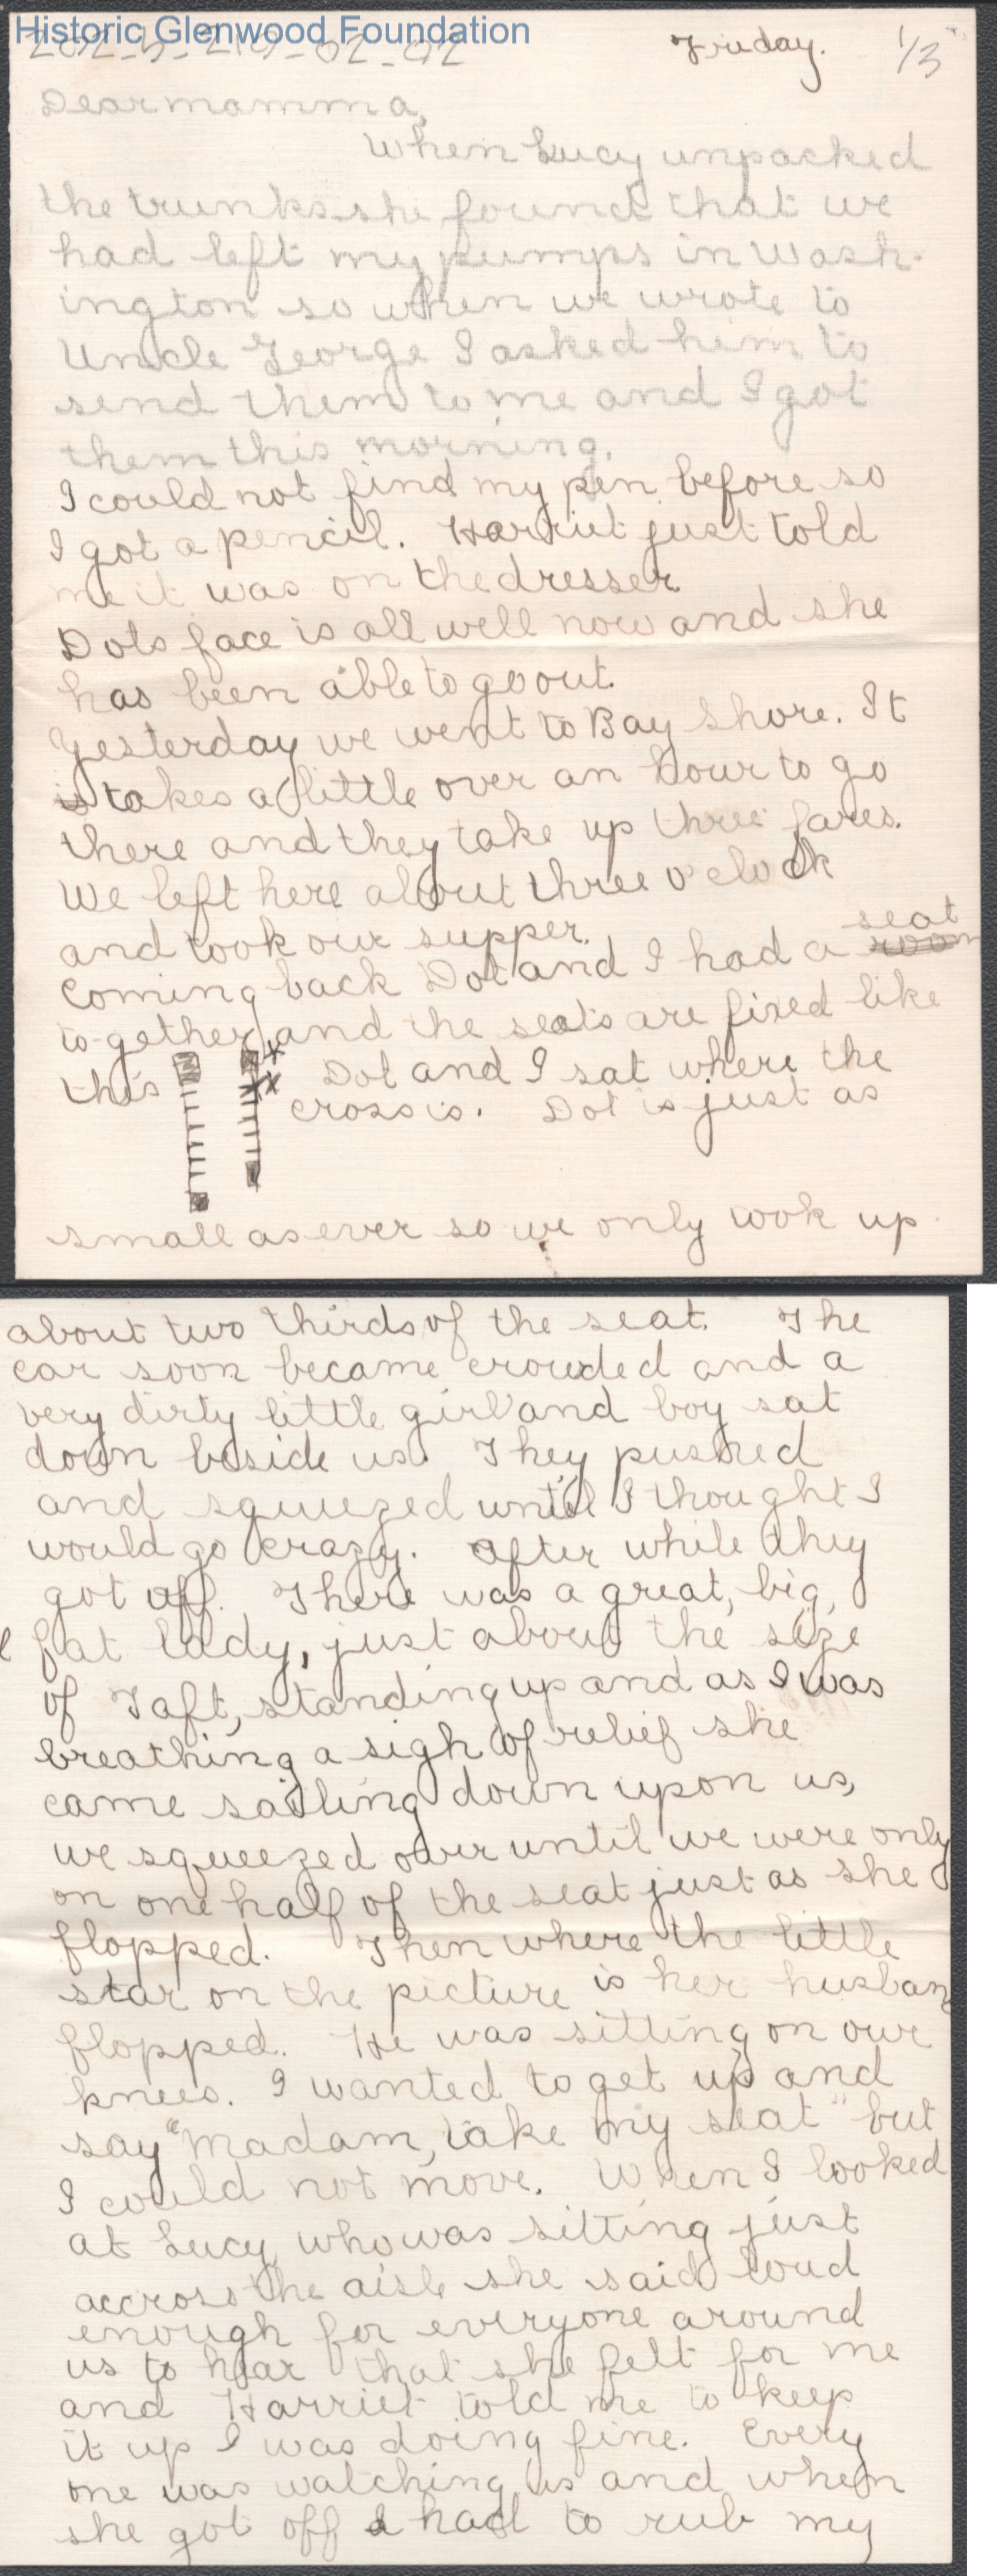 Historic Glenwood Foundation
202-5-219-02-02
Friday. 1/3
Dear mamma,
When Lucy unpacked
the trunks she found that we
had left my pumps in Wash-
ington so when we wrote to
Uncle George I asked him to
send them to me and I got
them this morning.
I could not find my pen before so
I got a pencil. Harriet just told
me it was on the dresser
Dots face is all well now and she
has been able to go out.
Yesterday we went to Bay Shore. It
is takes a little over an hour to go
there and they take up three fares.
We left here about three o'clock
and took our supper.
seat
Coming back Dot and I had a room
to-gether and the seats are fixed like
this Dot and I sat where the
cross is. Dot is just as
small as ever so we only took up
about two thirds of the seat. The
car soon became crowded and a
very dirty little girl and boy sat
down beside us. They pushed
and squeezed until I thought I
would go crazy. After while they
got off. There was a great, big,
fat lady, just about the size
of Taft, standing up and as I was
breathing a sigh of relief she
came sailing down upon us,
we squeezed over until we were only
on one half of the seat just as she
flopped. Then where the little
star on the picture is her husban
flopped. He was sitting on our
knees. I wanted to get up and
say "Madam, take my seat" but
I could not move. When I looked
at Lucy who was sitting just
accross the aisle she said loud
enough for everyone around
us to hear that she felt for me
and Harriet told me to keep
it up I was doing fine. Every
one was watching us and when
she got off I had to rub my